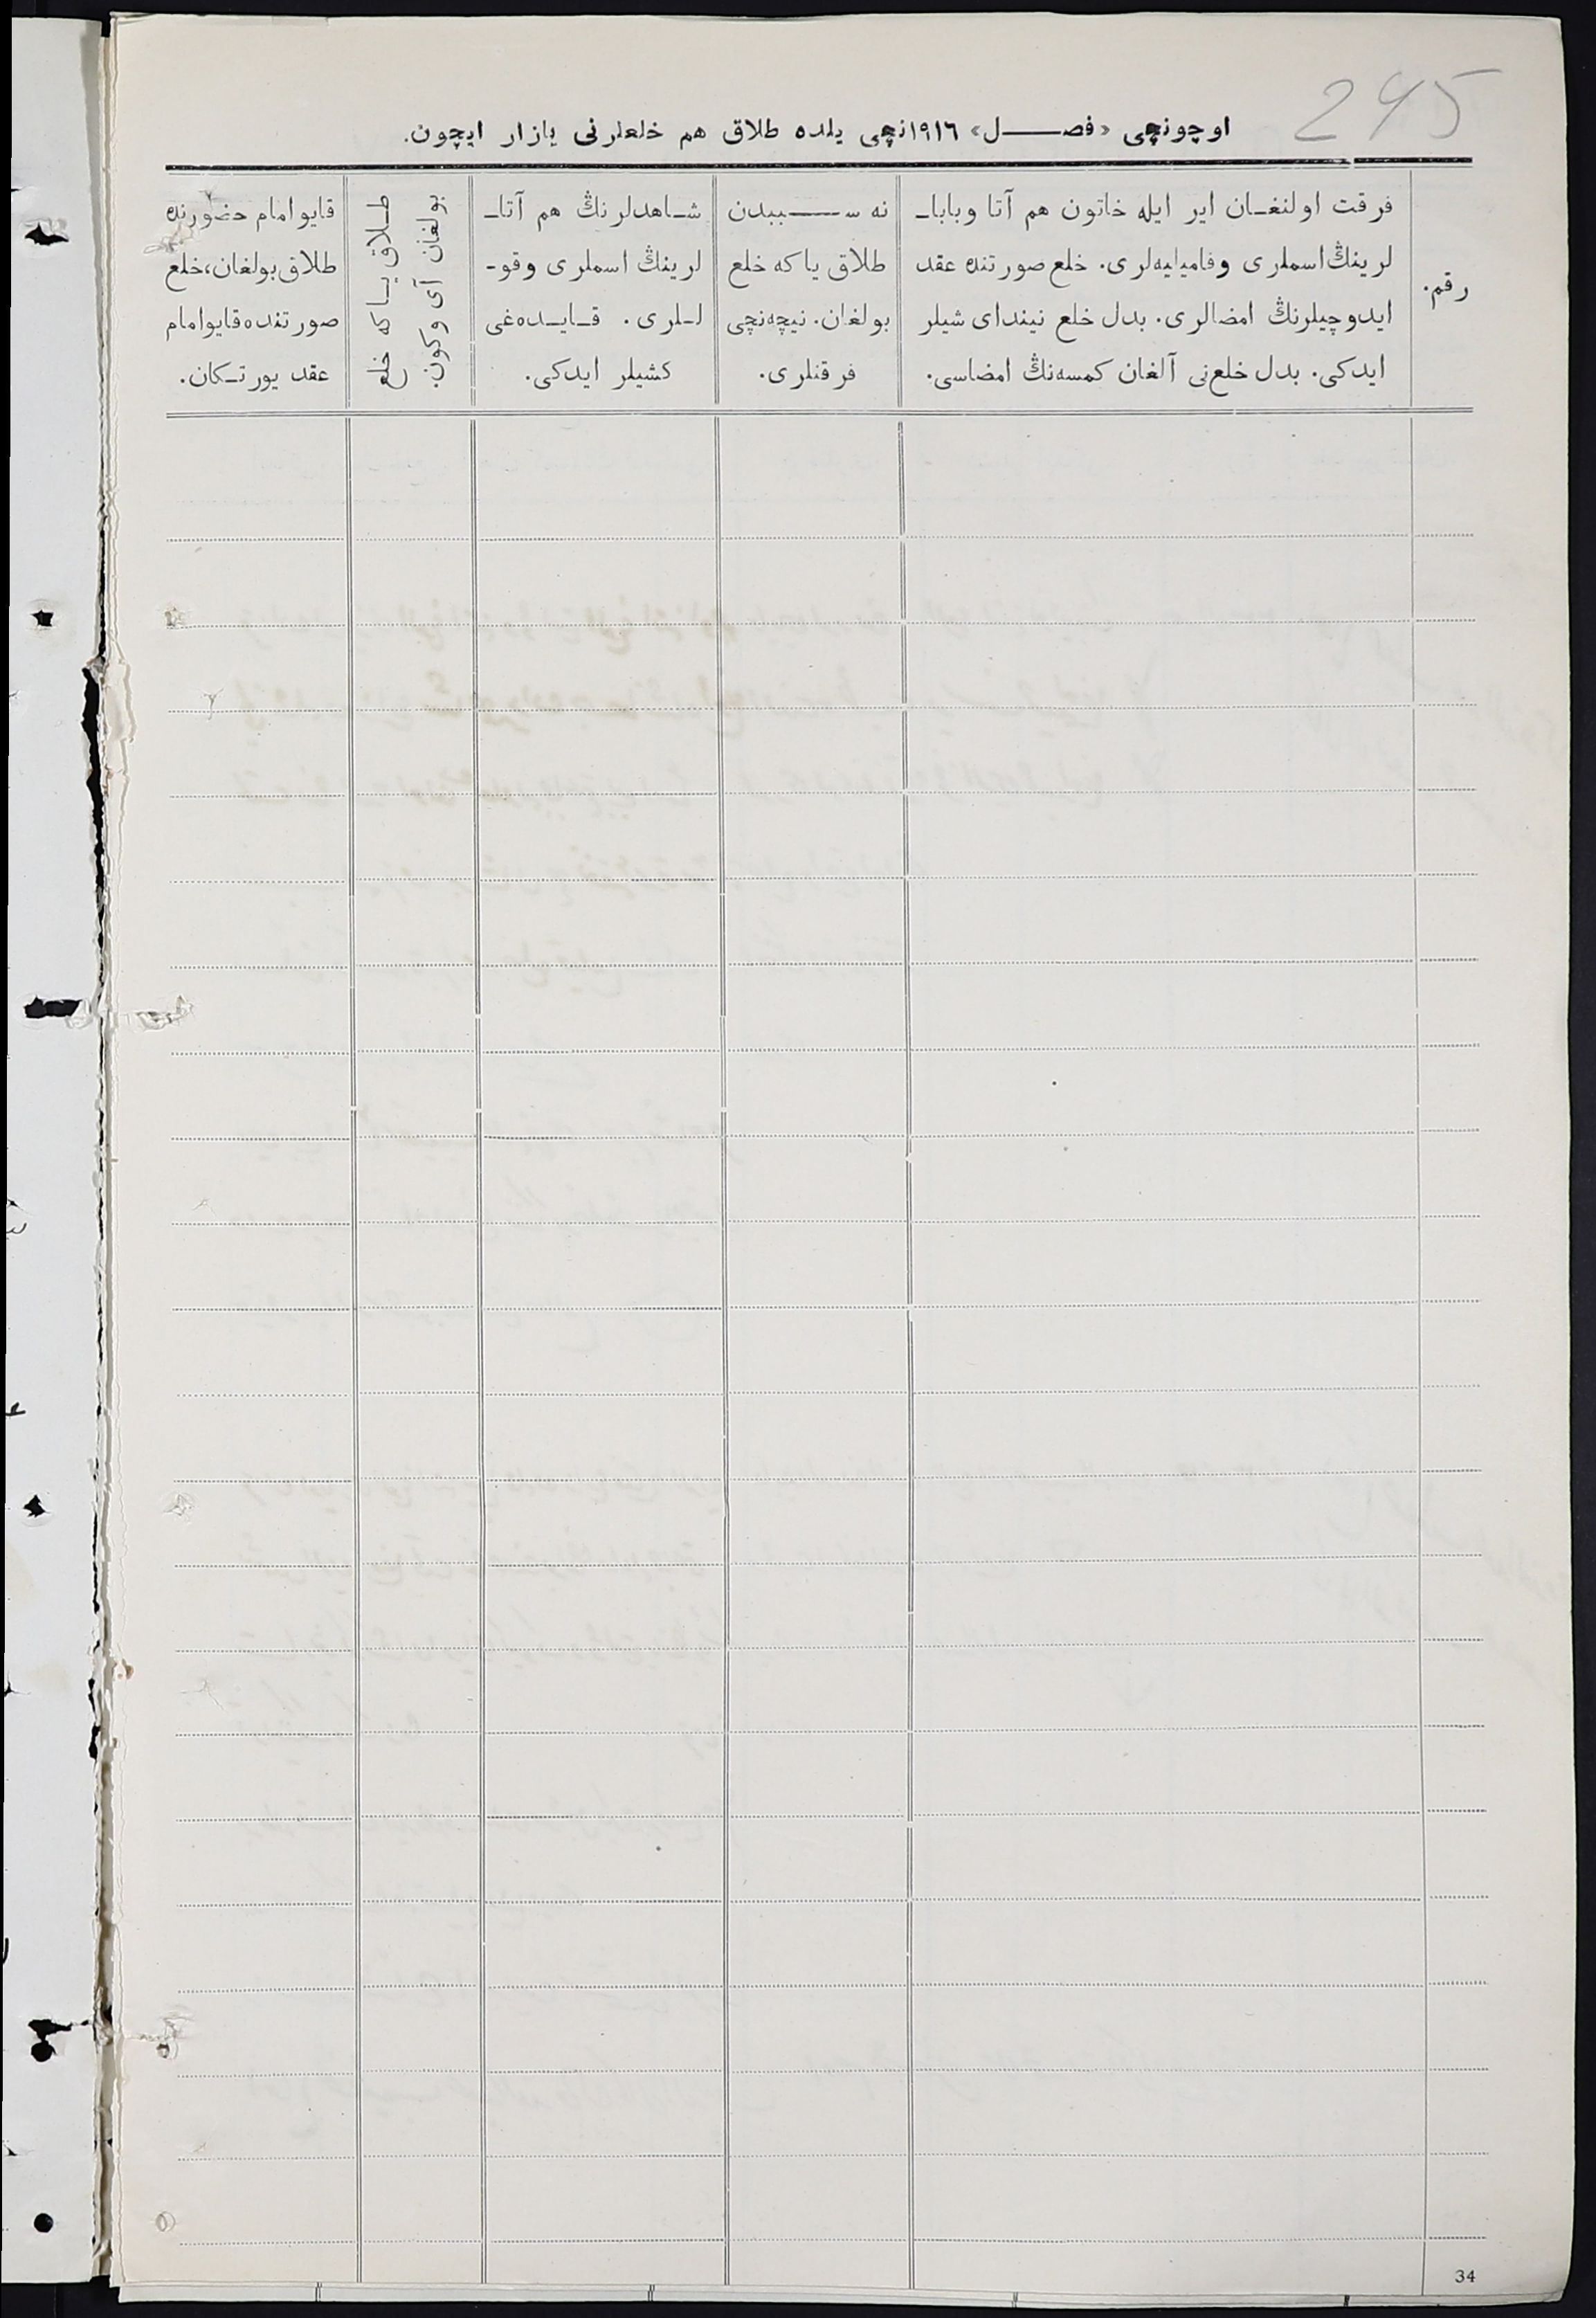 245
اوچونچی «فصـــل» ١٩١٦نچی یلده طلاق هم خلعلرنی یازار ایچون.
رقم.
فرقت اولنغـان ایر ایله خاتون هم آتا وباباـ
لرینڭ اسملری وفامیلیه‌لری. خلع صورتنده عقد
ایدوچیلرنڭ امضالری. بدل خلع نیندای شیلر
ایدکی. بدل خلع‌نی آلغان کمسه‌نڭ امضاسی.
نه ســـببدن
طلاق یاکه خلع
بولغان. نیچه‌نچی
فرقتلری.
شـاهدلرنڭ هم آتاـ
لرینڭ اسملری وقوـ
لـلری. قـایـده‌غی
کشیلر ایدکی.
طـلاق یـاکه خلع
بولغان آی وکون.
قایو امام حضورنده
طلاق بولغان، خلع
صورتنده قایو امام
عقد یورتـکان.
34